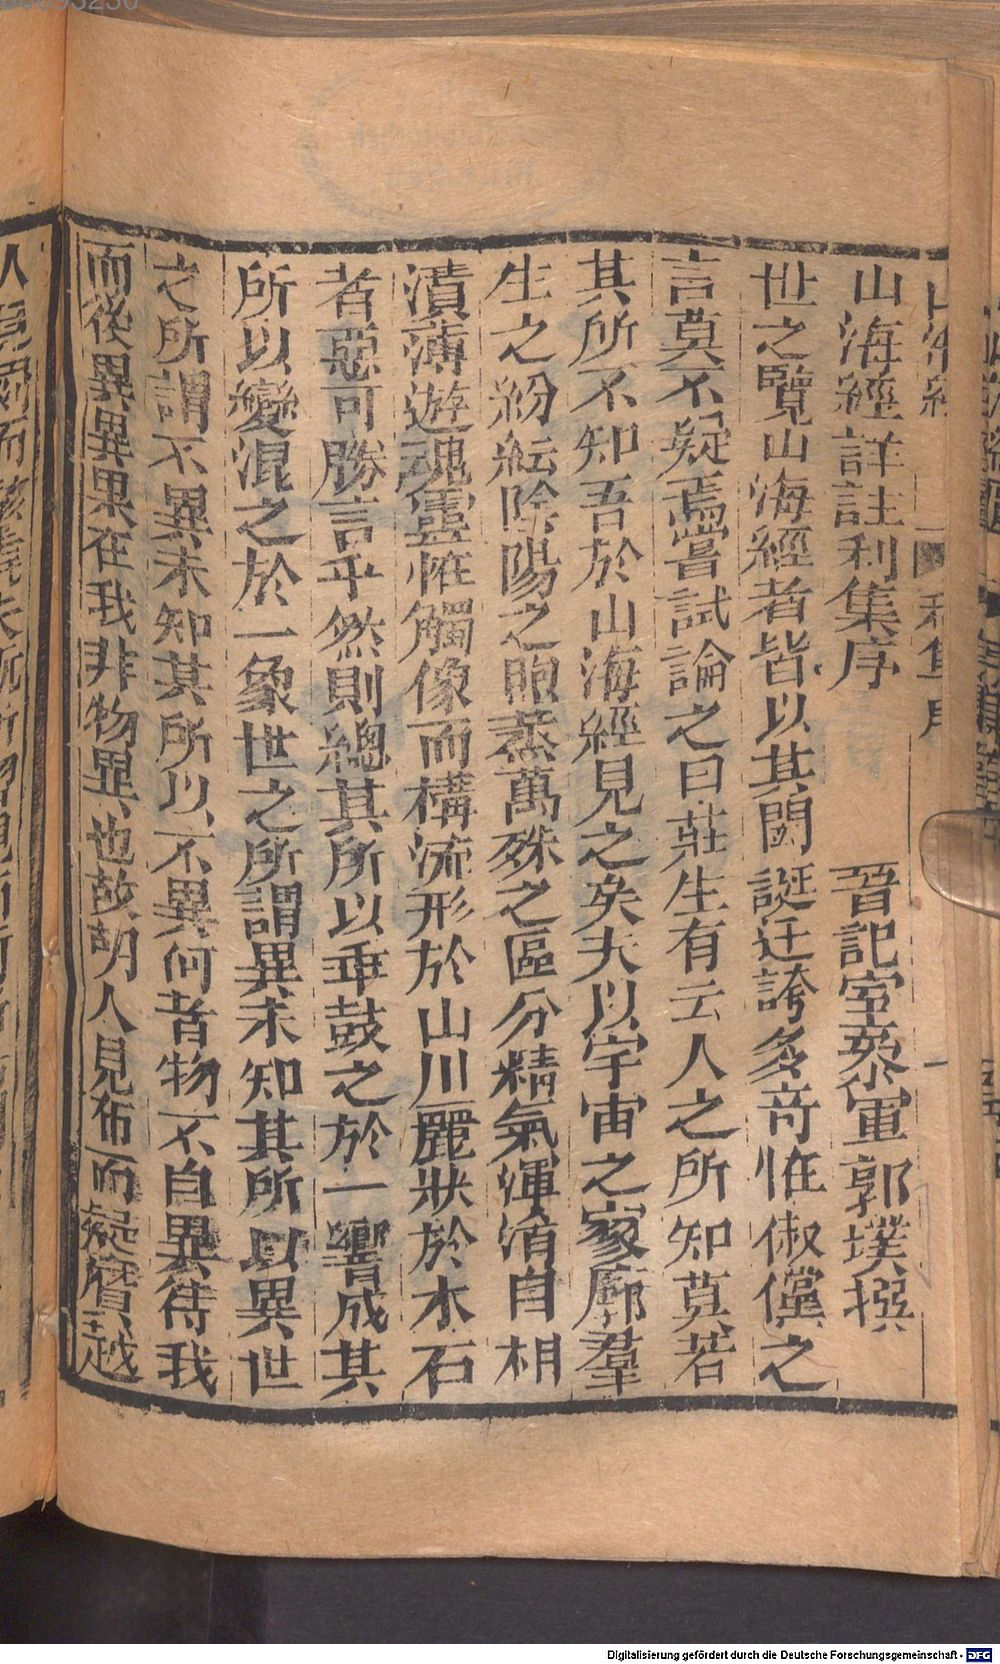 山海經詳註利集序 晉記室叅軍郭璞撰
世之覽山海經者皆以其閎誕迂誇多奇恠俶儻之
言莫不疑焉嘗試論之曰莊生有云人之所知莫若
其所不知吾於山海經見之矣夫以宇宙之寥廓羣
生之紛紜陰陽之煦蒸萬殊之區分精氣渾淆自相
濆薄遊魂靈恠觸像而構流形於山川麗狀於木石
者惡可勝言乎然則總其所以乖鼓之於一響成其
所以變混之於一象世之所謂異未知其所以異世
之所謂不異未知其所以不異何者物不自異待我
而後異異果在我非物異也故胡人見布而疑黂越
Digitalisierung gefördert durch die Deutsche Forschungsgemeinschaft - DFG